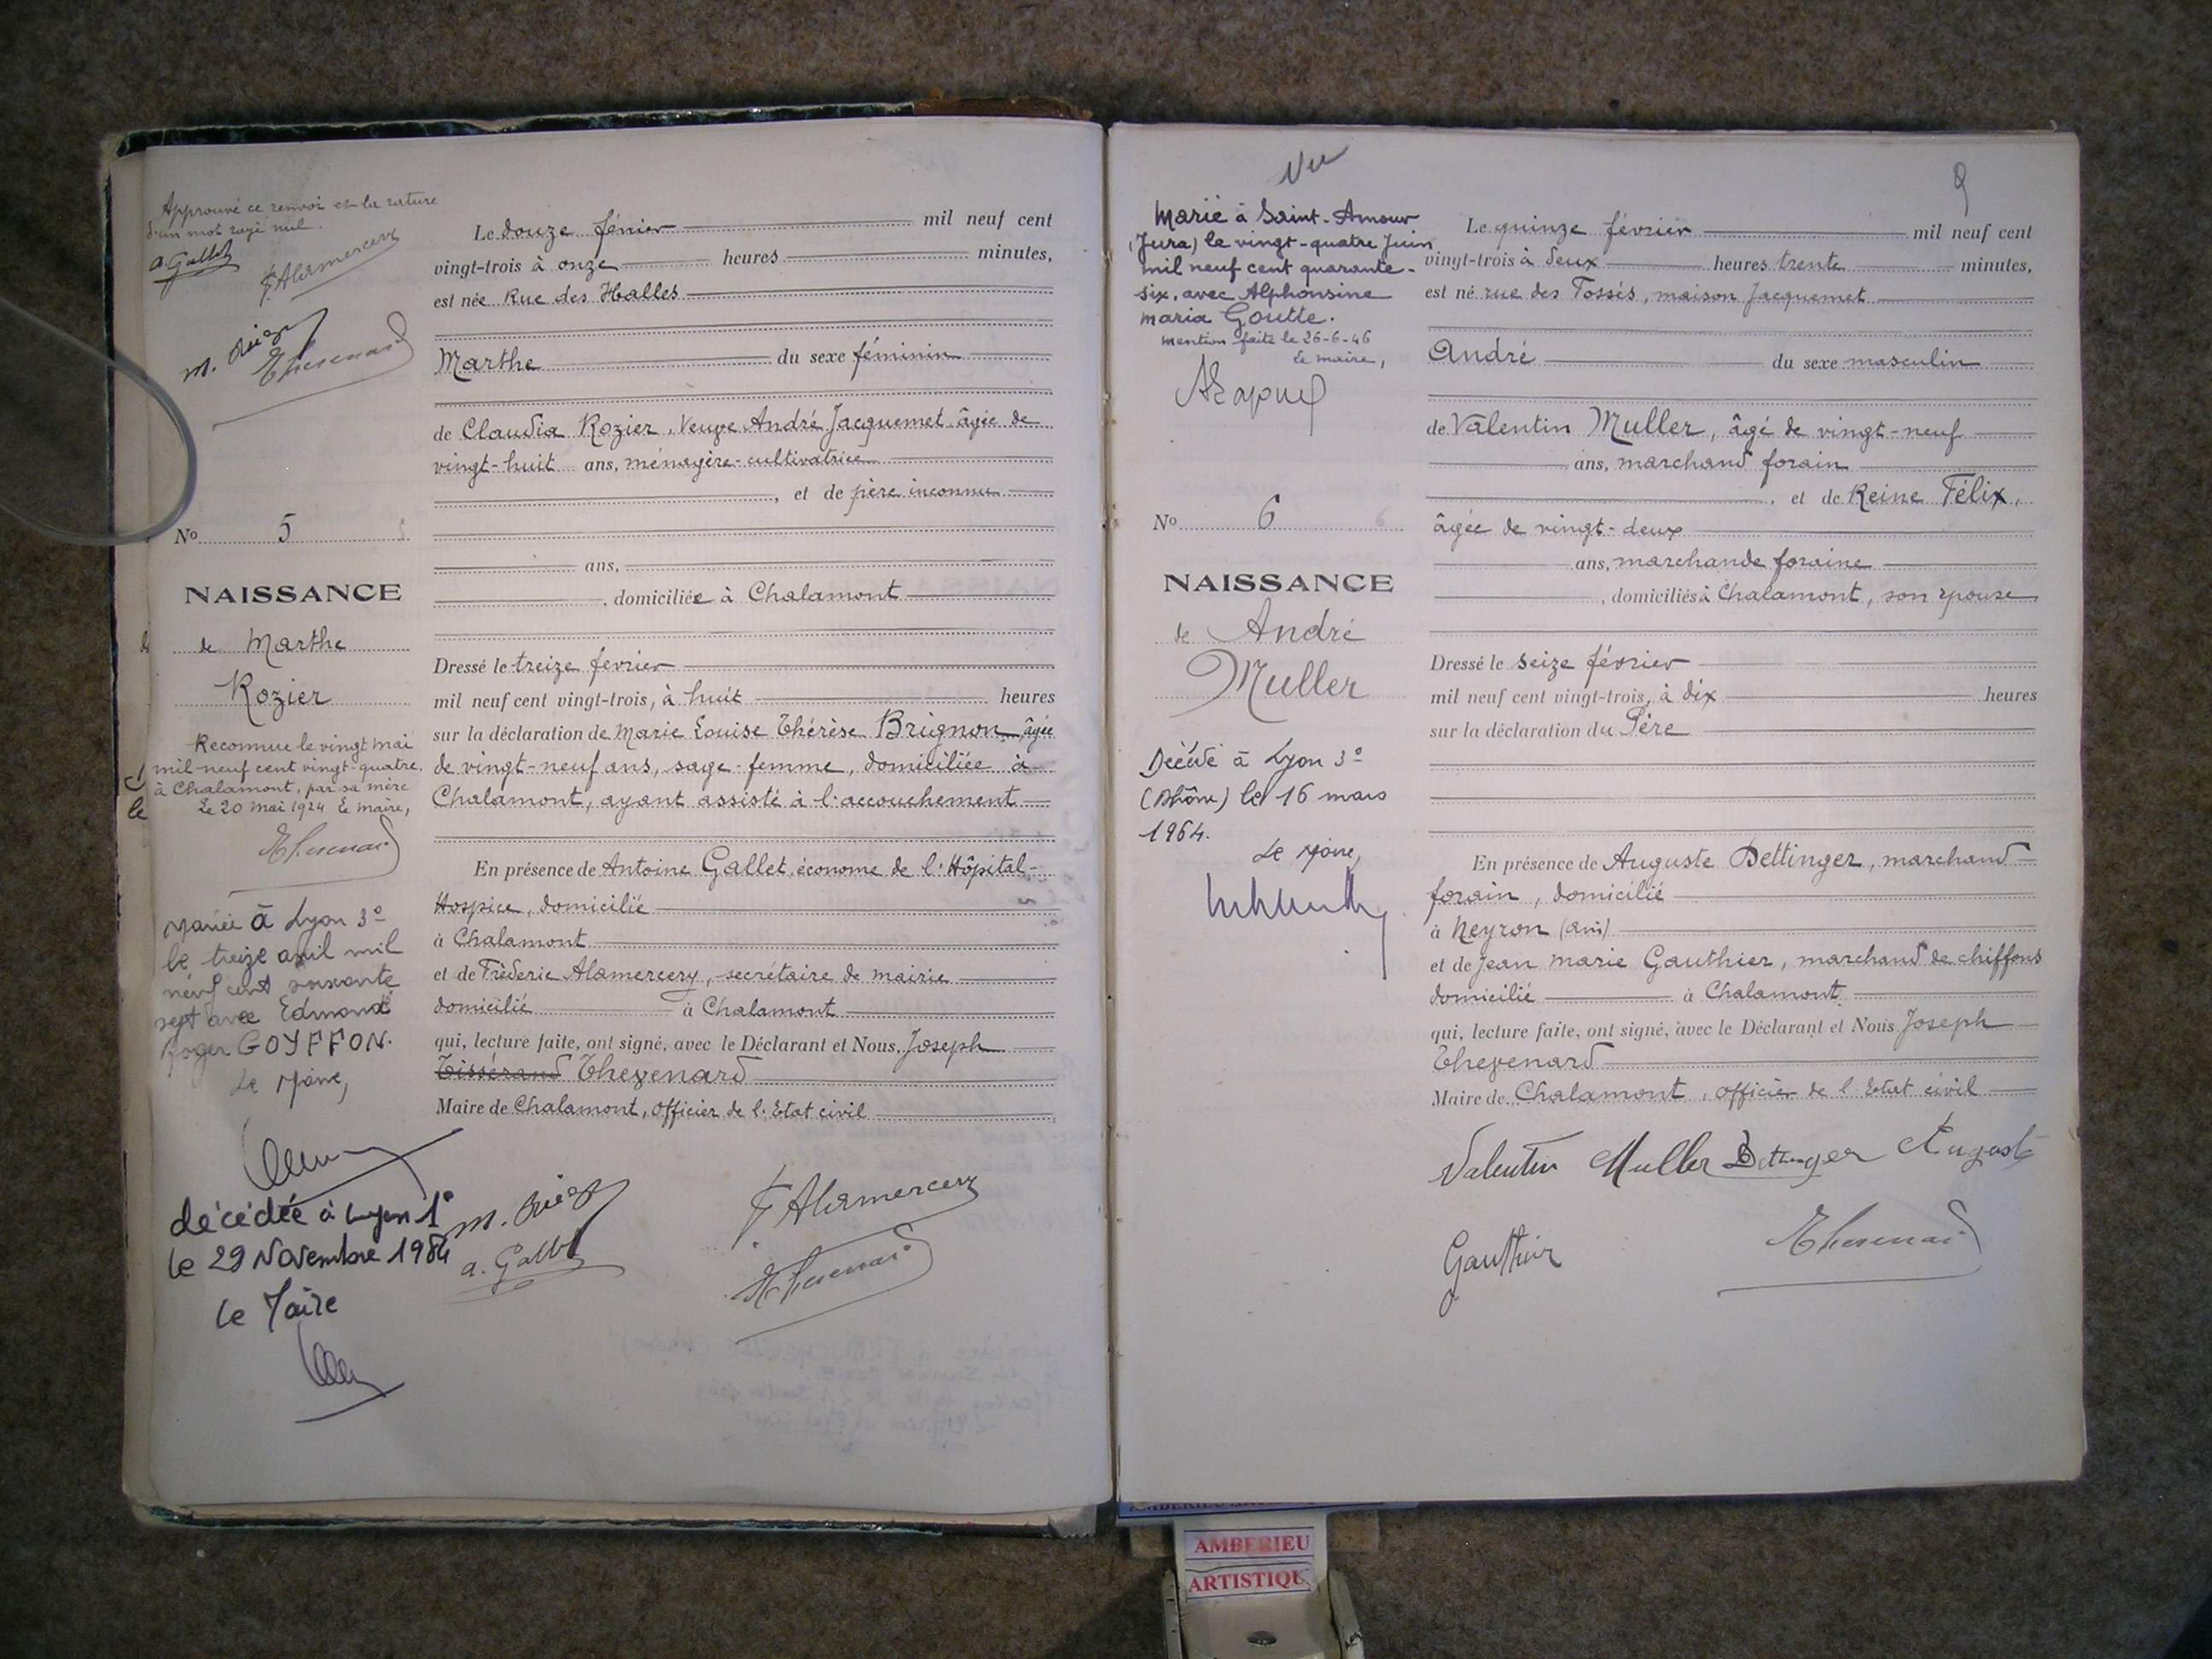 Approuvé ce renvoi et la rature
d'un mot rayé nul.
a. Gallet
F. Alamercery
Thevenard
No 5
NAISSANCE
de Marthe
Rozier
Reconnue le vingt mai
mil-neuf cent vingt-quatre
à Chalamont, par sa mère
Le 20 mai 1924 Le maire,
Thevenard
Mariée à Lyon 3e
le treize avril mil
neuf cent soixante
sept avec Edmond
Roger GOYFFON.
Le Maire,
décédée à Lyon 1°
le 29 Novembre 1984
Le Maire
Le douze février mil neuf cent
vingt-trois à onze heures minutes,
est née Rue des Halles
Marthe du sexe féminin
de Claudia Rozier, Veuve André Jacquemet âgée de
vingt-huit ans, ménagère-cultivatrice
, et de père inconnu
ans,
, domiciliée à Chalamont
Dressé le treize fevrier
mil neuf cent vingt-trois, à huit heures
sur la déclaration de Marie Louise Thérèse Brignon, âgée
de vingt-neuf ans, sage-femme, domiciliée à
Chalamont, ayant assisté à l'accouchement
En présence de Antoine Gallet, économe de l'Hôpital-
Hospice, domicilié
à Chalamont
et de Fréderic Alamercery, secrétaire de mairie
domicilié à Chalamont
qui, lecture faite, ont signé, avec le Déclarant et Nous, Joseph
Tissérand Thevenard
Maire de Chalamont, Officier de l'Etat civil
F. Alamercery
a. Gallet
Thevenard
Vu
9
Marié à Saint-Amour
(Jura) le vingt-quatre Juin
mil neuf cent quarante-
six, avec Alphonsine
Maria Goutte.
Mention faite le 26-6-46
Le maire,
No 6
NAISSANCE
de André
Muller
Décédé à Lyon 3e
(Rhône) le 16 mars
1964.
Le Maire,
Le quinze février mil neuf cent
vingt-trois à deux heures trente minutes,
est né rue des Fossés, maison Jacquemet
André du sexe masculin
de Valentin Muller, âgé de vingt-neuf
ans, marchand forain
, et de Reine Félix,
âgée de vingt-deux
ans, marchande foraine
, domiciliés à Chalamont, son épouse
Dressé le seize février
mil neuf cent vingt-trois, à dix heures
sur la déclaration du Père
En présence de Auguste Dettinger, marchand
forain, domicilié
à Neyron (Ain)
et de Jean Marie Gauthier, marchand de chiffons
domicilié à Chalamont
qui, lecture faite, ont signé, avec le Déclarant et Nous Joseph
Thevenard
Maire de Chalamont, Officier de l'Etat civil
Valentin Muller Dettinger Auguste
Gauthier
Thevenard
AMBERIEU
ARTISTIQUE